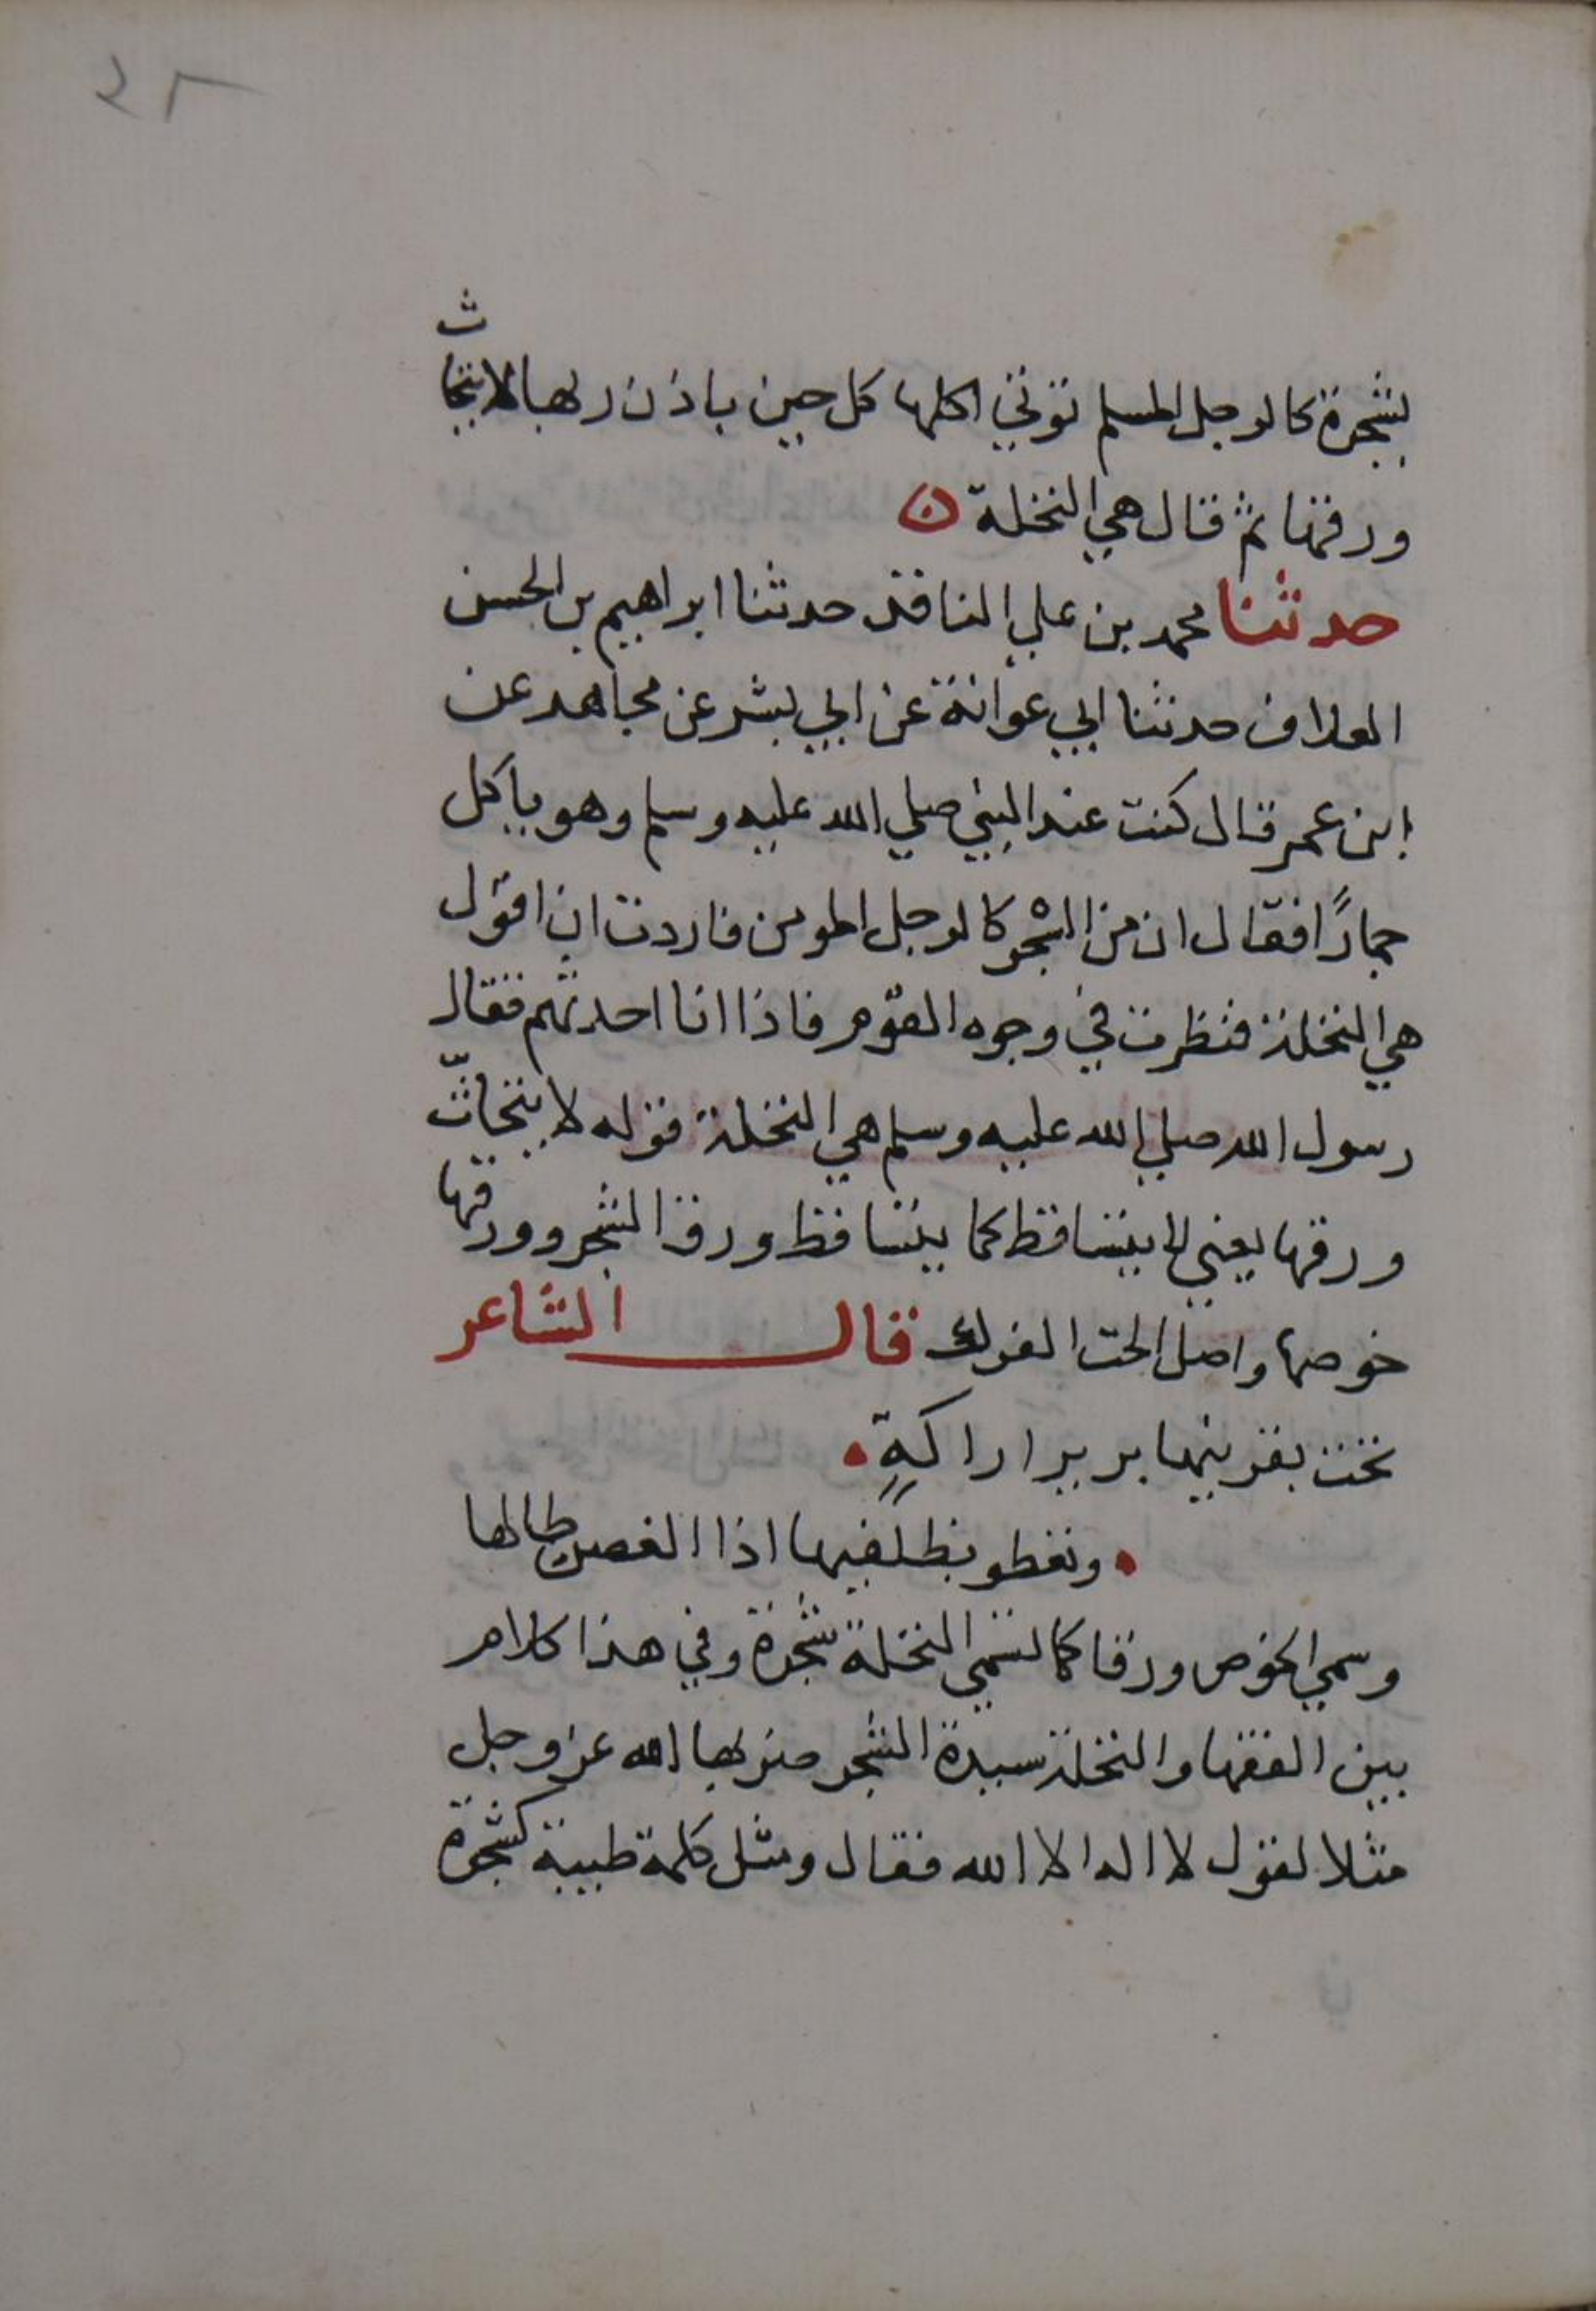 ٢٣
بشجرة كالرجل المسلم توتي اكلها كل حين باذن ربها لا يتحاث
ورقها ثم قال هي النخلة ۞
حدثنا محمد بن علي الناقد حدثنا ابراهيم بن الحسن
العلاف حدثنا ابي عوانة عن ابي بشر عن مجاهد عن
ابن عمر قال كنت عند النبي صلي الله عليه وسلم وهو ياكل
جمارًا فقال ان من الشجر كالرجل المومن فاردت ان اقول
هي النخلة فنظرت في وجوه القوم فاذا انا احدثهم فقال
رسول الله صلي الله عليه وسلم هي النخلة قوله لا يتحاثّ
ورقها يعني لا يتساقط كما يتساقط ورق الشجر وورقها
خوصها واصل الحت الفرك قال الشاعر
تحت بقرنيها برير اراكةٍ
وتعطو بظلفيها اذا الغصن طالها
وسمي الخوص ورقا كما تسمي النخلة شجرة وفي هذا كلام
بين الفقها والنخلة سيدة الشجر ضربها الله عز وجل
مثلا لقول لا اله الا الله فقال ومثل كلمة طيبة كشجرة